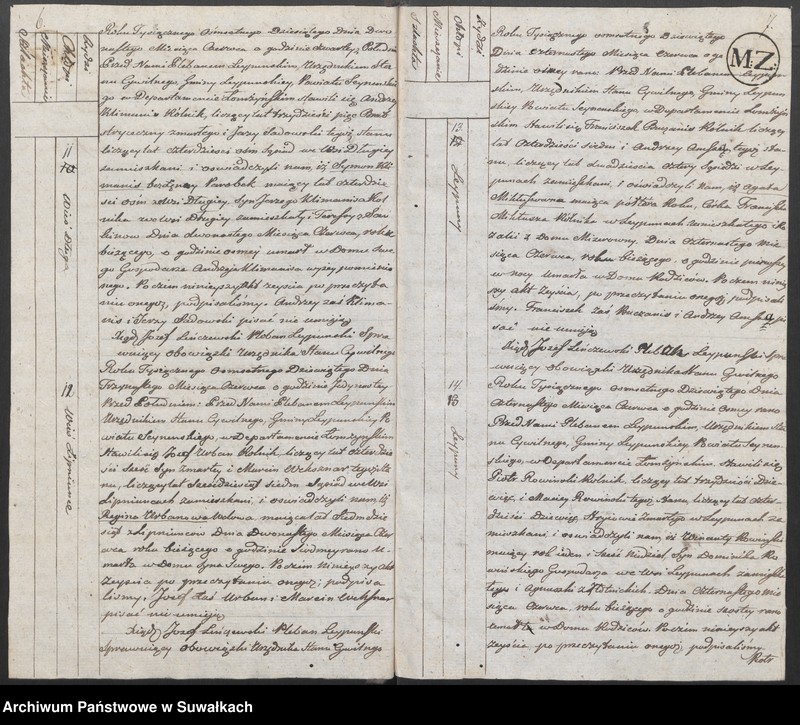 6
Roku Tysiącznego Osmsetnego Dziesiątego Dnia Dwu-
nastego Miesiąca Czerwca o godzinie czwartey z Południa
Przed Nami Plebanem Leypunskim, Urzędnikiem Sta-
nu Cywilnego, Gminy Leypunskiey, Powiatu Seynenskie-
go w Departamencie Łomżyńskim Stawili się Andrzey
Klimanis Rolnik, liczący lat trzydzieści pięć Brat
stryieczny zmarłego i Jerzy Sadowski tegoż Stanu
liczący lat czterdzieści ośm Sąsiad we Wsi Długiey
zamieszkani i oswiadczyli nam, iż Symon Kli-
manis Parobek maiący lat czterdzie-
ści ośm Długiey, Syn Jerzego Klimanisa Rol-
nika w Wsi Długiey zamieszkały i Teresy z
Dnia dwunastego Miesiąca Czerwca, roku
bieżącego, o godzinie osmey umarł w Domu Swe-
go Gospodarza Andrzeia Klimanisa wyżey pomienio-
nego. Po czem ninieyszy akt zeyścia, po przeczyta-
niu onegoż, podpisaliśmy. Andrzey zaś Klima-
nis i Jerzy Sadowski pisać nie umieią
Xiądz Jozef Linczewski Pleban Leypunski Spra-
wuiący Obowiązki Urzędnika Stanu Cywilnego
Roku Tysiącznego Osmsetnego Dziesiątego Dnia
Trzynastego Miesiąca Czerwca o godzinie Jedynastey
Przed Południem: Przed Nami Plebanem Leypunskim
Urzędnikiem Stanu Cywilnego, Gminy Leypunskiey Po-
wiatu Seynenskiego, w Departamencie Łomżyńskim
Stawili się Jozef Urban Rolnik, liczący lat czterdzie-
ści sześć Syn zmarłey, i Marcin Weksznar tegoż Sta-
nu, liczący lat Sześdziesiąt siedm Sąsiad we Wsi
Lipniuncach zamieszkani, i oswiadczyli nam, iż
Regina Urbanowa Wdowa, maiąca lat Siedmdzie-
siąt z Lipniunców Dnia Dwunastego Miesiąca Czer-
wca roku bieżącego o godzinie Siodmey rano U-
marła w Domu Syna Swego. Po czem ninieyszy akt
Zeyścia po przeczytaniu onegoż, podpisa-
liśmy, Jozef zaś Urban i Marcin Weksznar
pisać nie umieią
Xiądz Jozef Linczewski Pleban Leypunski
Sprawuiący obowiązki Urzędnika Stanu Cywilnego
11
Wieś Długa
12
Wieś Lipniunce
7.
M:Z:
Roku Tysiącznego osmsetnego Dziesiątego
Dnia Czternastego Miesiąca Czerwca o go-
dzinie osmey rano: Przed Nami Plebanem Leypun-
skim, Urzędnikiem Stanu Cywilnego, Gminy Leypun-
skiey Powiatu Seynenskiego, w Departamencie Łomżyń-
skim Stawili się Franciszek Buczanis Rolnik liczący
lat czterdzieści siedm i Andrzey tegoż Sta-
nu, liczący lat dwadzieścia cztery Sąsiedzi w Ley-
punach zamieszkani, i oświadczyli nam, iż Agata
Mikłuszowna maiąca połtora Roku, Corka Franciszka
Mikłusza Rolnika w Leypunach zamieszkałego i Ro-
zalii z Domu Mizerowny. Dnia Czternastego Mie-
siąca Czerwca, roku bieżącego, o godzinie pierwszey
w nocy umarła w Domu Rodziców. Po czem niniey-
szy akt Zeyścia, po przeczytaniu onegoż, podpisali-
śmy. Franciszek zaś Buczanis i Andrzey pi-
sać nie umieią
Xiądz Jozef Linczewski Pleban Leypunski Spra-
wuiący obowiązki Urzędnika Stanu Cywilnego
Roku Tysiącznego osmsetnego Dziesiątego Dnia
Czternastego Miesiąca Czerwca o godzinie osmey rano
Przed Nami Plebanem Leypunskim, Urzędnikiem Sta-
nu Cywilnego, Gminy Leypunskiey, Powiatu Seynen-
skiego, w Departamencie Łomżyńskim, Stawili się
Piotr Rowinski Rolnik, liczący lat trzydzieści Dzie-
więć, i Maciey Rowinski tegoż Stanu, liczący lat czter-
dzieści Dziewięć, Stryiowie zmarłego w Leypunach za-
mieszkani i oświadczyli nam, iż Wincenty Rowinski
maiący rok ieden i Sześć Niedziel, Syn Dominika Ro-
winskiego Gospodarza we Wsi Leypunach zamieszka-
łego i Agnieszki Dnia Czternastego Mie-
siąca Czerwca, roku bieżącego o godzinie szostey rano
umarł w Domu Rodziców. Po czem ninieyszy akt
zeyścia po przeczytaniu onegoż, podpisaliśmy.
Piotr
13
Leypuny
14
Leypuny
Archiwum Państwowe w Suwałkach